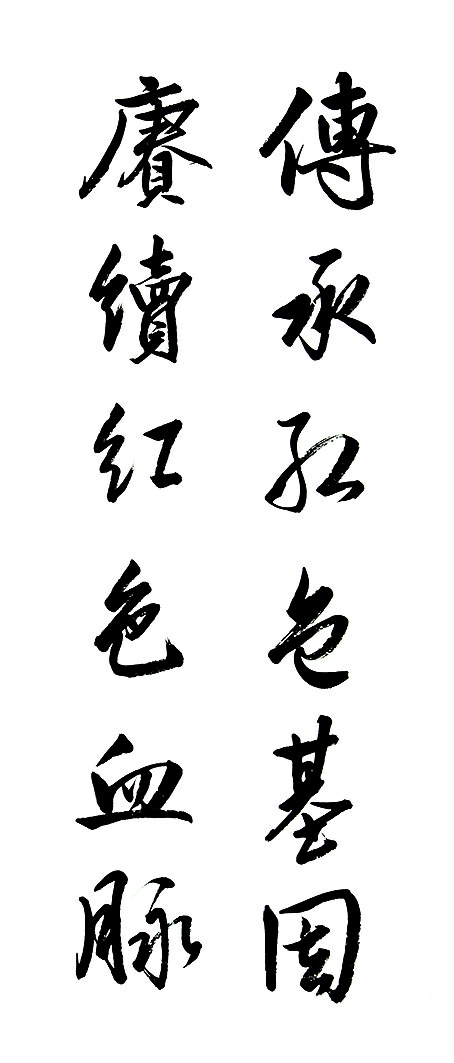 傳承紅色基因
賡續紅色血脉